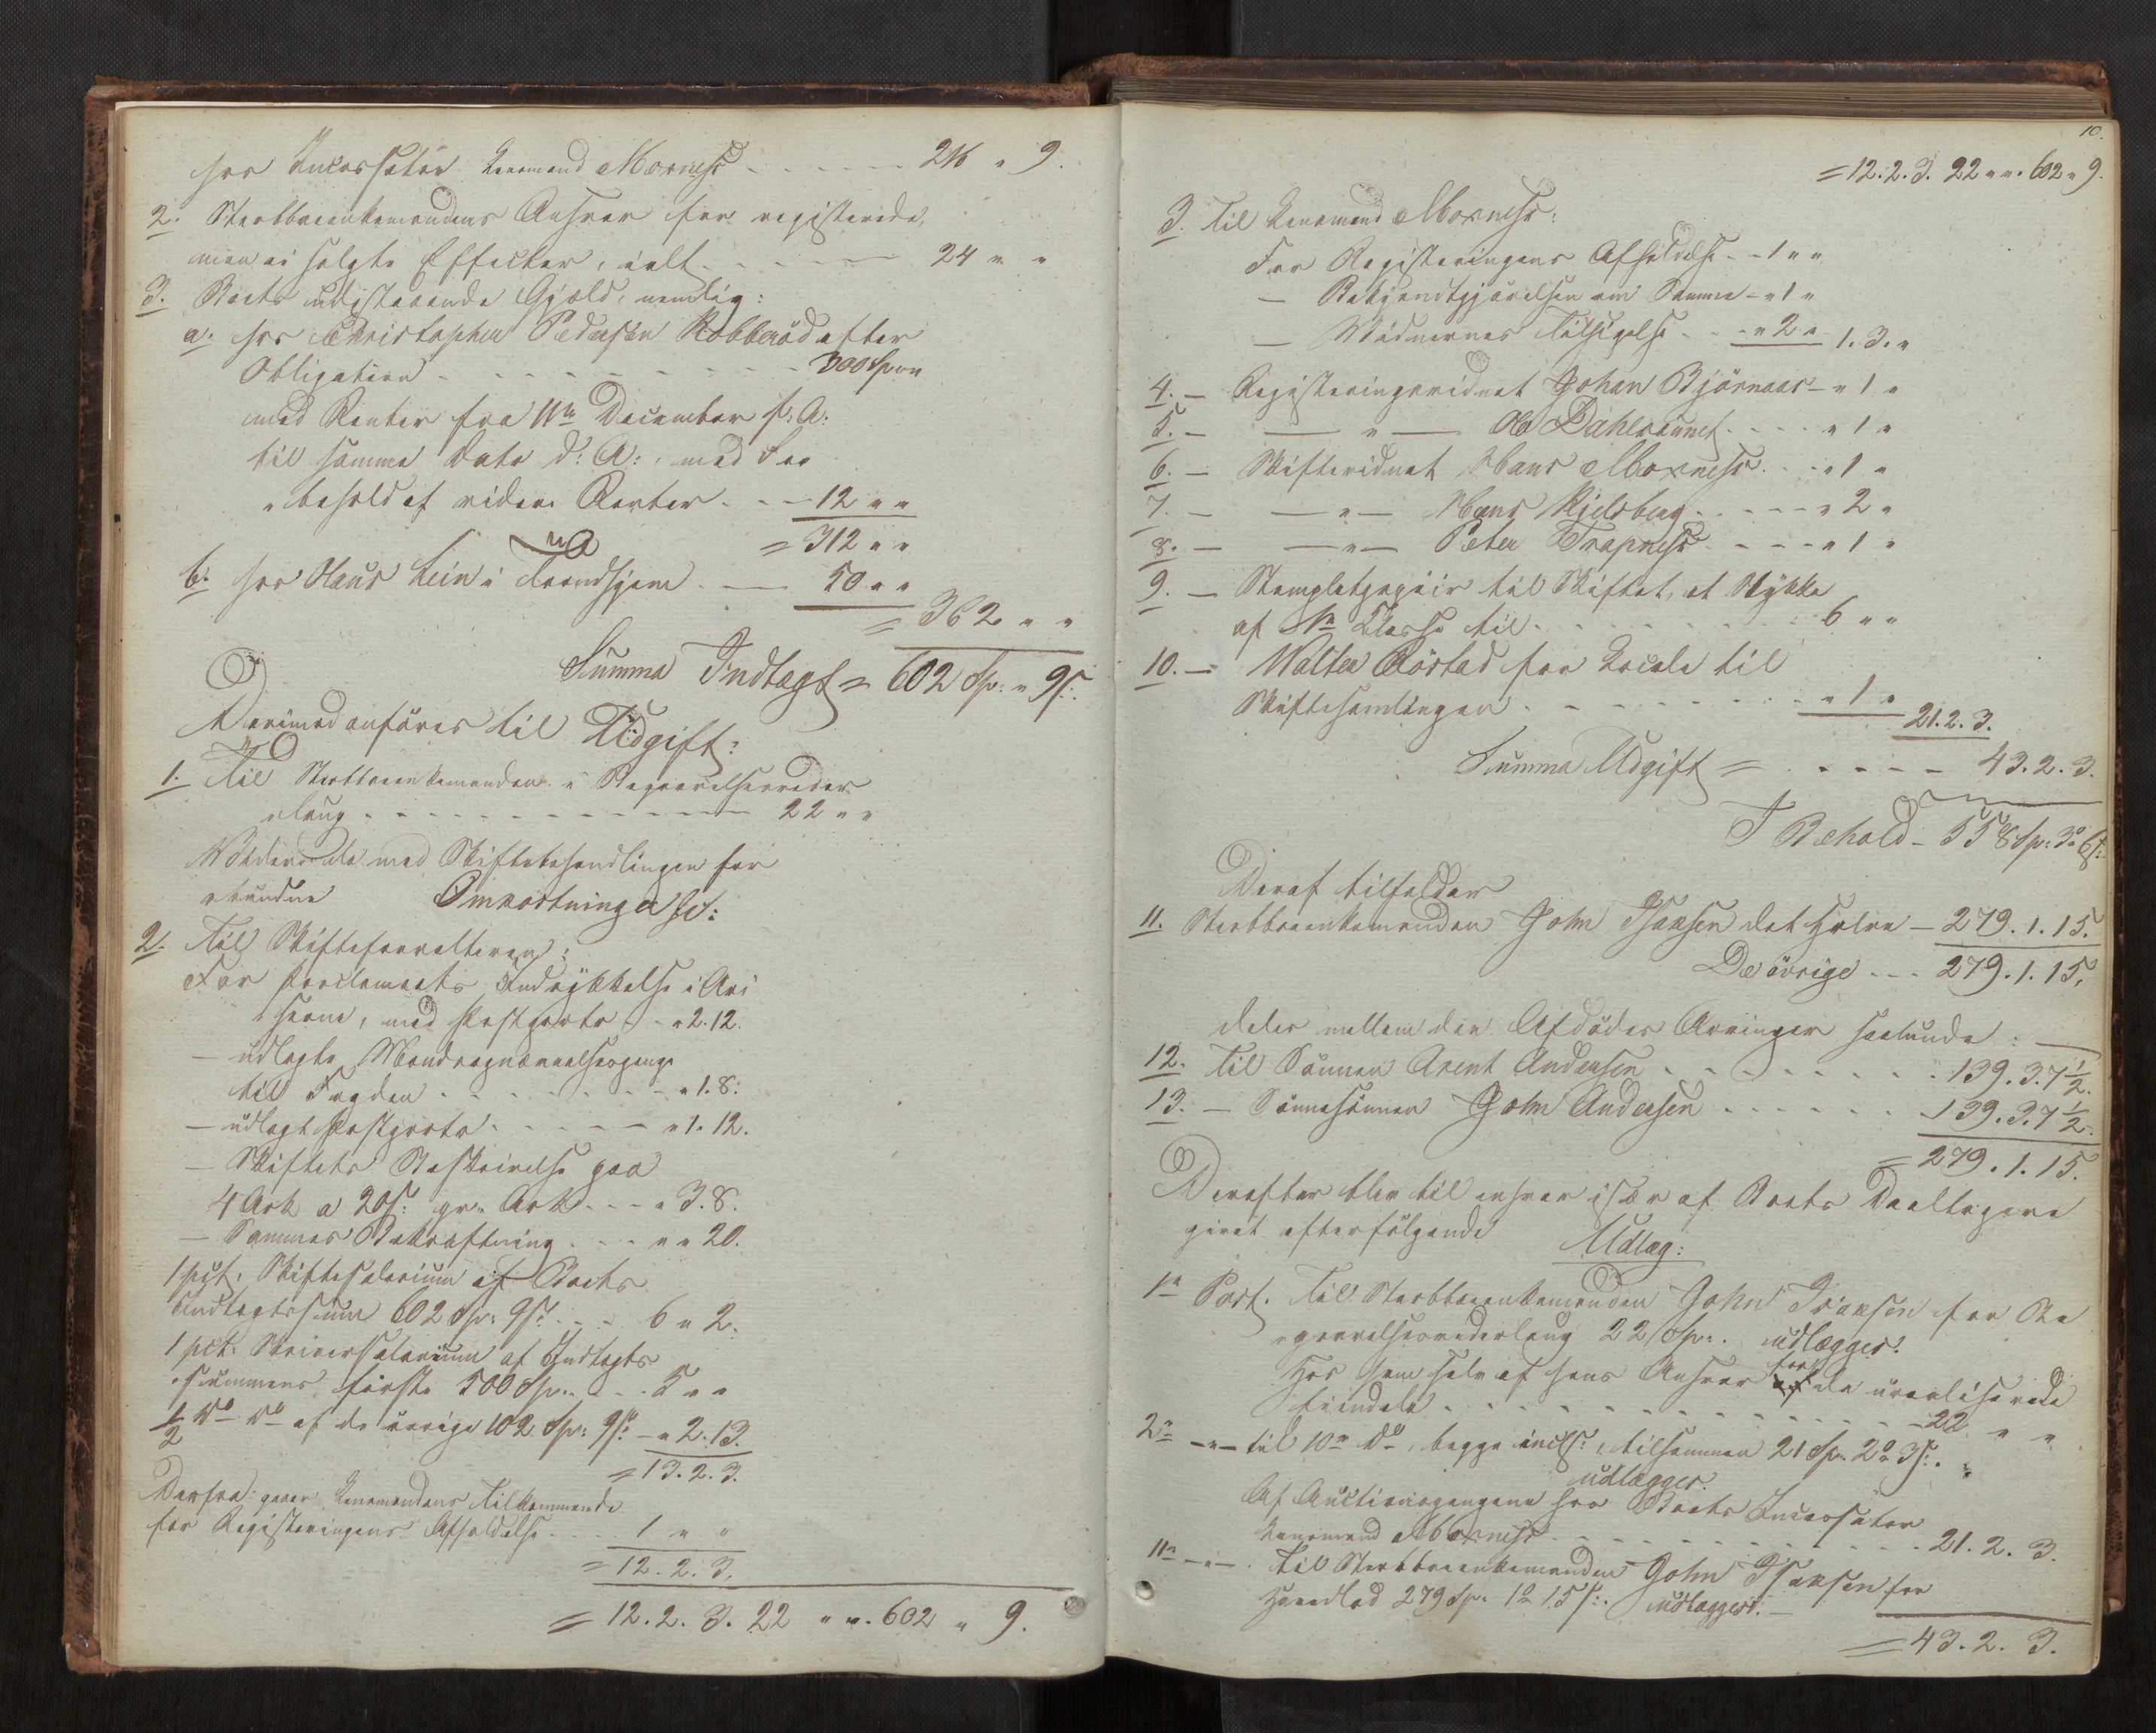 hos Incassator Lensmand Moxness - - - - - 216 " 9.
2. Sterbboeenkemandens Ansvar for registerede,
men ei solgte Effecter, ialt - - - - - 24 " "
3. Boets udistaaende Gjæld, nemlig:
a. hos Christopher Pedersen Robberød efter
Obligation - - - - - - - - - 300 Sp " "
med Renter fra 11te December f: A:
til samme Dato d: A:, med For
"behold af videre Renter - - - 12 " "
= 312 " "
b. hos Hans Lein i Trondhjem - 50 " "
= 362 " "
Summa Indtægt = 602 Sp: " 9 s:
Derimod anføres til Udgift:
1. Til Sterbboeenkemanden i Begravelsesveder
"laug - - - - - - - - - - - 22 " "
Videre de med Skiftebehandlingen for
"bundne Omkostninger sc:
2. Til Skifteforvalteren:
For Proclamaets Indrykkelse i Avi
"serne, med Postporto - - " 2. 12.
— udlagte
til Fogden - - - - - - - " 1. 8:
— udlagt Postporto - - - - - " 1. 12.
— Skiftets Beskrivelse paa
4 Ark a 20 s: pr. Ark - - - " 3. 8.
— Sammes Bekræftning - - - " " 20.
1 pct. Skiftesalarium af Boets
Indtægtssum 602 Sp: 9 s: - - - 6 " 2.
1 pct. Skriversalarium af Indtægts
"summens første 500 Sp: - - - 5 " "
1/2 do do af de øvrige 102 Sp: 9 s: - " 2. 13.
= 13. 2. 3.
Derfra gaaer Lensmandens Tilkommende
for Registeringens Afholdelse - - - 1 " "
= 12. 2. 3.
= 12. 2. 3. 22 " ". 602 " 9.
10.
= 12. 2. 3. 22 " ". 602 " 9.
3. Til Lensmand Moxness:
For Registeringens Afholdelse - - 1 " "
— Bekjendtgjørelsen om Samme - " 1 "
— Vidnernes Tilsigelse - - - " 2 " 1. 3. "
4. — Registeringsvidnet Johan Bjørnaas - " 1 "
5. — — " — Ole Dahlsaunet - - - " 1 "
6. — Skiftevidnet Hans Moxness - - - " 1 "
7. — — " — Hans Kjelsberg - - - - - " 2 "
8. — — " — Peter Trapness - - - - " 1 "
9. — Stempletpapiir til Skiftet, et Stykke
af Classe til - - - - - - - - - 6 " "
10. — Walter Røstad for Locale til
Skiftesamlingen - - - - - - - - - " 1 "
21. 2. 3.
Summa Udgift = - - - - - 43. 2. 3.
I Behold - 558 Sp: 3 o 6 s:
Deraf tilfalder
11. Sterbboeenkemanden John Isaksen det Halve - 279. 1. 15.
De øvrige - - - 279. 1. 15.
deles mellem den Afdødes Arvinger saalunde: —
12. Til Sønnen Arent Andersen - - - - - - - - - 139. 3. 7 1/2.
13. — Sønnesønnen John Andersen - - - - - - 139. 3. 7 1/2.
= 279. 1. 15.
Derefter blev til enhver især af Boets Deeltagere
givet efterfølgende
Udlæg:
1n Post. Til Sterbboeenkemanden John Isaksen for Be
"gravelsesvederlaug 22 Sp:. udlægges:
Hos ham selv af hans Ansvar for de urealiserede
Eiendele - - - - - - - - - - - - - - - - 22 " "
2n — " — til 10n do, begge incls:, tilsammen 21 Sp: 2 o 3 s:.
udlægges.
Af Auctionspengene hos Boets Incassator
Lensmand Moxness - - - - - - - - - - - - - 21. 2. 3.
11n — " —. Til Sterbboeenkemanden John Isaksen for
Hovedlod 279 Sp: 1 o 15 s:. udlægges. —
= 43. 2. 3.